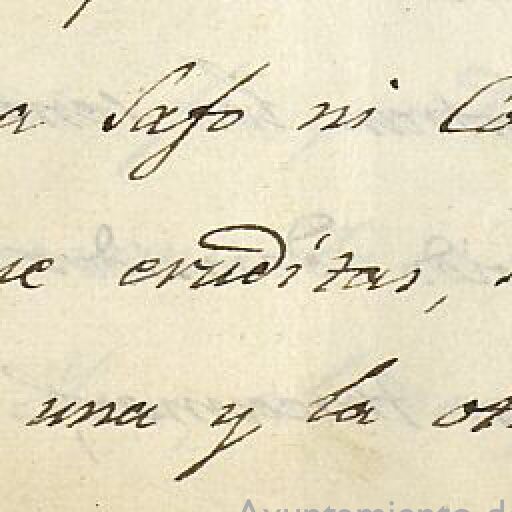 a Safo ni Co
ue eruditas,
una y la o
Ayuntamiento d